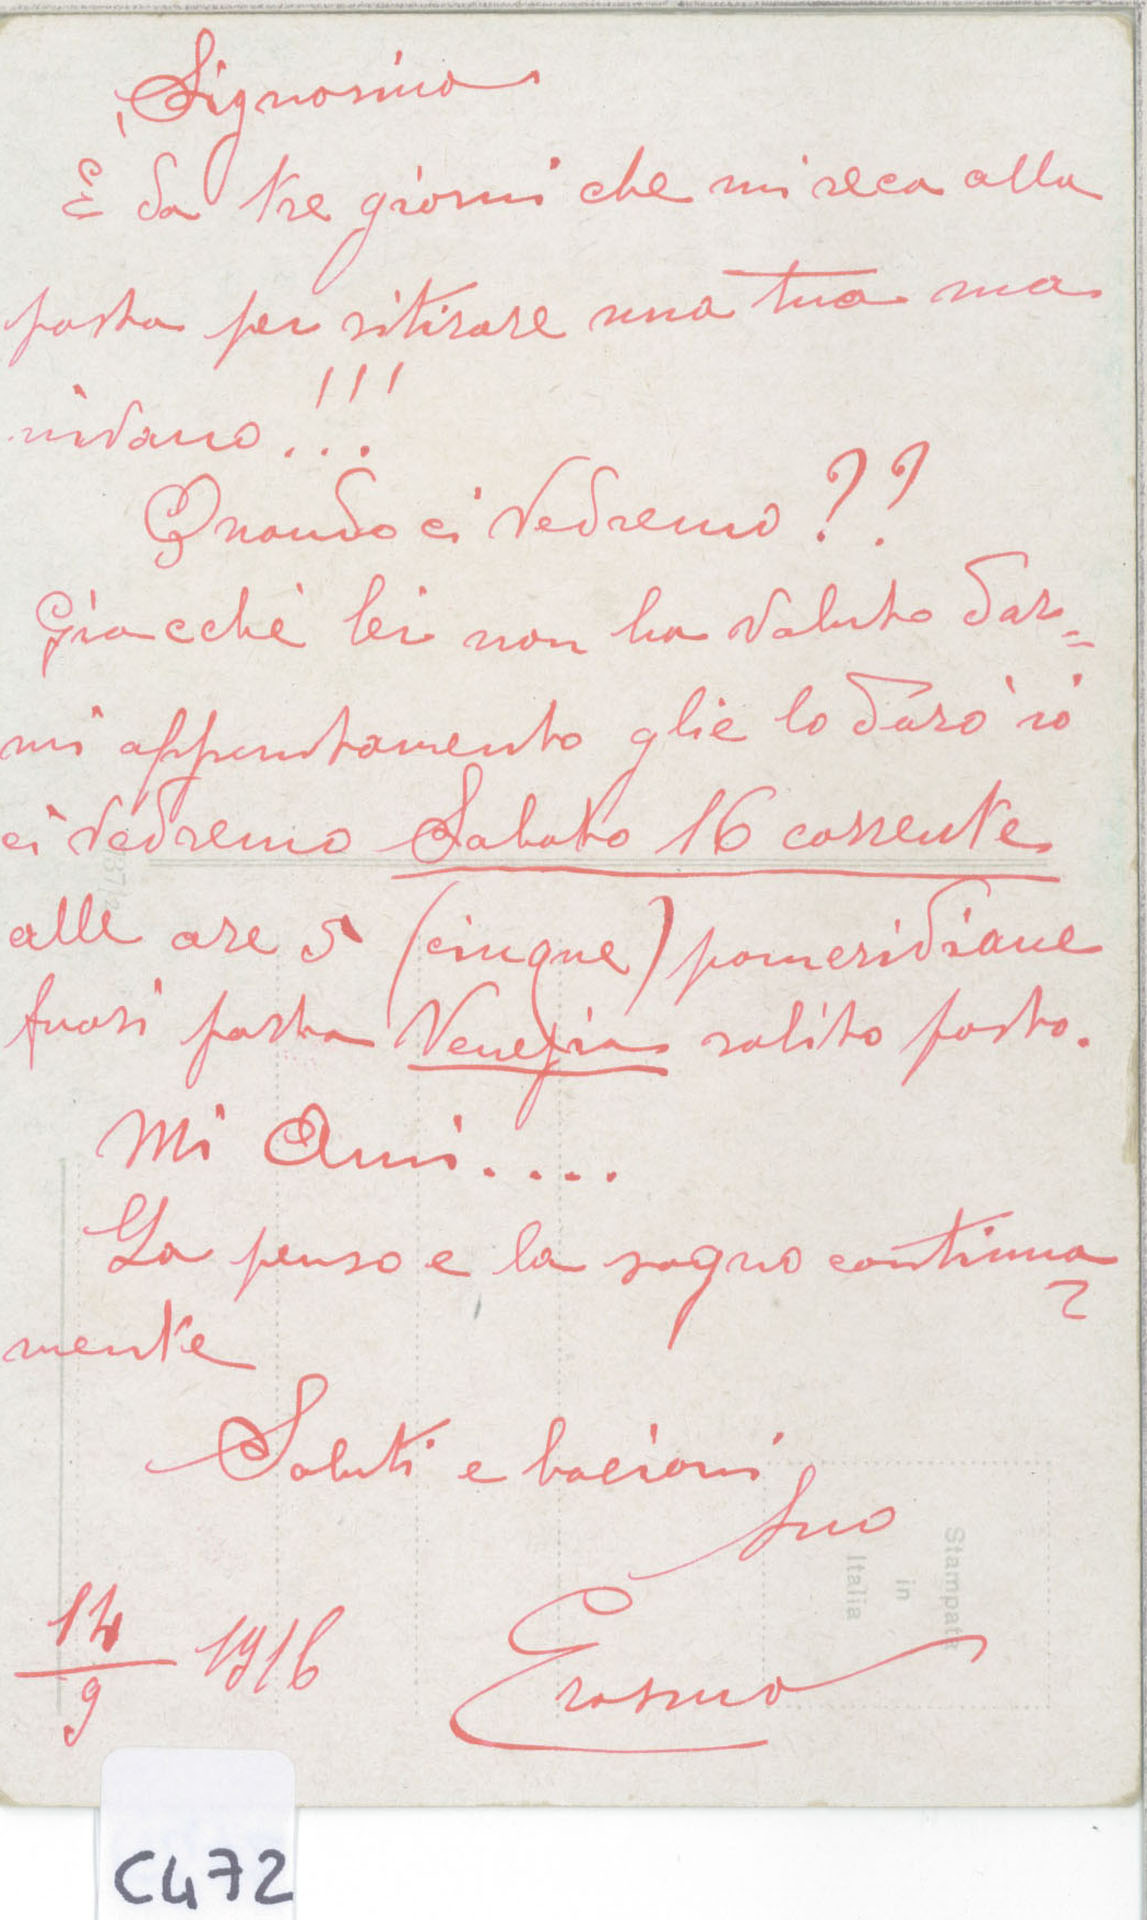 Signorina
È da tre giorni che mi reco alla
posta per ritirare una tua ma
nidano!!!
Quando ci vedremo ??
Giacchè lei non ha voluto dar=
mi appuntamento glie lo darò io
ci vedremo Sabato 16 corrente
alle ore 5 (cinque) pomeridiane
fuori porta Venezia solito posto.
Mi Ami....
La penso e la sogno continua
mente
Saluti e bacioni
Suo
Erasmo
14/9 1916
Stampata
in
Italia
C472